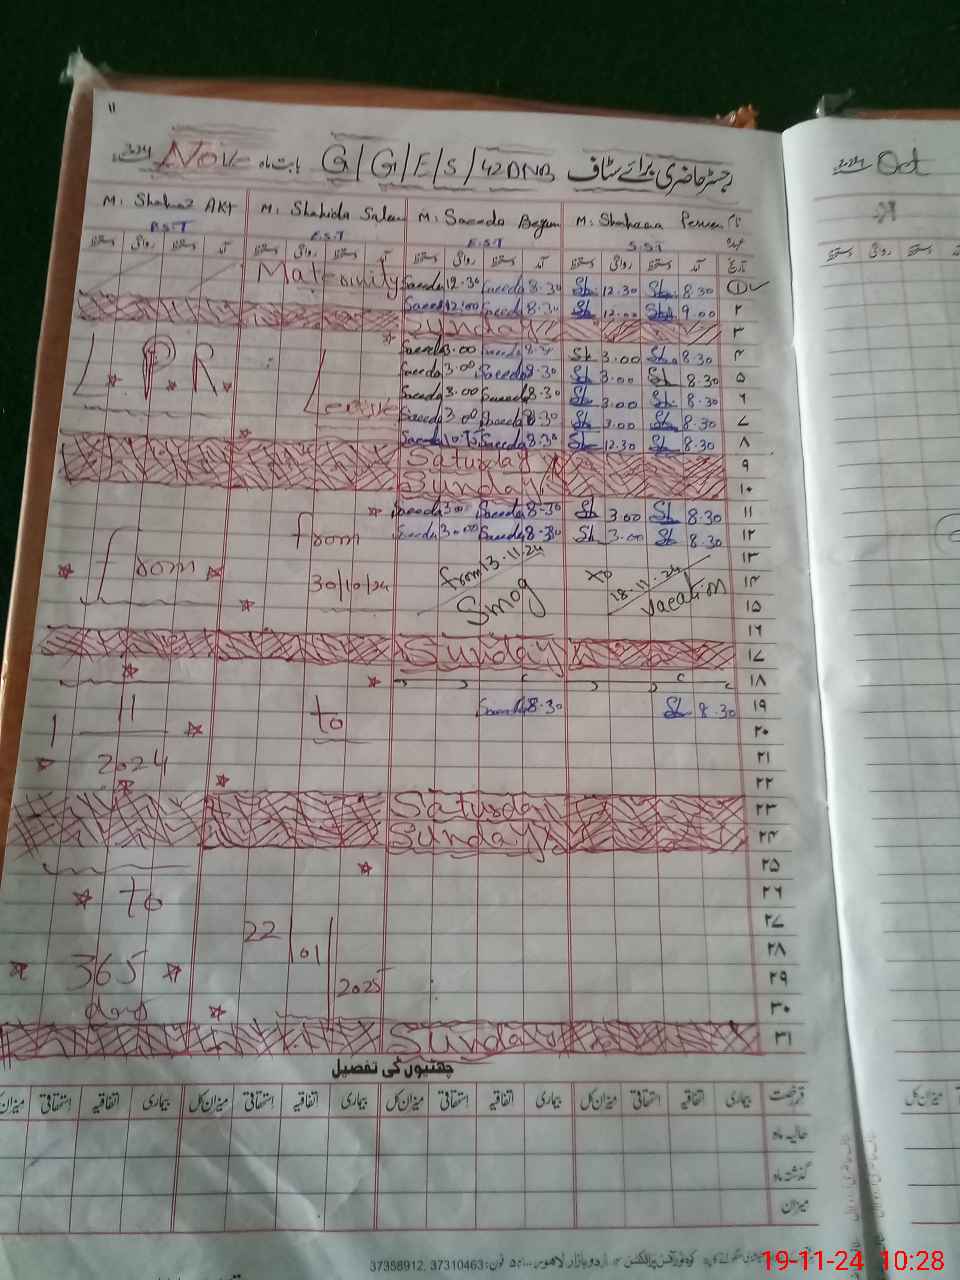 رجسٹر حاضری برائے سٹاف G/G/E/S/42DNB بابت ماہ Nov 2024
M: Shahnaz AKt M: Shahida Salam M: Saeeda Begum M: Shaheena Perven
P.S.T E.S.T E.S.T S.S.T
دستخط روانگی دستخط آمد دستخط روانگی دستخط آمد دستخط روانگی دستخط آمد دستخط روانگی دستخط آمد تاریخ
Maternity Saeeda 12.30 Saeeda 8.30 Sh 12.30 Sh 8.30 ۱
Saeeda 12.00 Saeeda 8.30 Sh 12.00 Sh 9.00 ۲
Sunday ۳
Saeeda 3.00 Saeeda 8.30 Sh 3.00 Sh 8.30 ۴
L.P.R Saeeda 3.00 Saeeda 8.30 Sh 3.00 Sh 8.30 ۵
Saeeda 3.00 Saeeda 8.30 Sh 3.00 Sh 8.30 ۶
Leave Saeeda 3.00 Saeeda 8.30 Sh 3.00 Sh 8.30 ۷
Saeeda 10.45 Saeeda 8.30 Sh 12.30 Sh 8.30 ۸
Saturday ۹
Sunday ۱۰
Saeeda 3.00 Saeeda 8.30 Sh 3.00 Sh 8.30 ۱۱
from Saeeda 3.00 Saeeda 8.30 Sh 3.00 Sh 8.30 ۱۲
from from 13.11.24 to 18.11.24 ۱۳
30/10/24 Smog Vacation ۱۴
۱۵
۱۶
Sunday ۱۷
۱۸
11 to Saeeda 8.30 Sh 8.30 ۱۹
1 ۲۰
2024 ۲۱
۲۲
Saturday ۲۳
Sunday ۲۴
۲۵
to ۲۶
22 ۲۷
01 ۲۸
365 2025 ۲۹
days ۳۰
Sunday ۳۱
چھٹیوں کی تفصیل
میزان کل استحقاقی اتفاقیہ بیماری میزان کل استحقاقی اتفاقیہ بیماری میزان کل استحقاقی اتفاقیہ بیماری میزان کل استحقاقی اتفاقیہ بیماری قسم رخصت
حالیہ ماہ
گذشتہ ماہ
میزان
اردو بازار لاہور فون: 37310463, 37358912
2024 Oct
دستخط روانگی دستخط
میزان کل
19-11-24 10:28